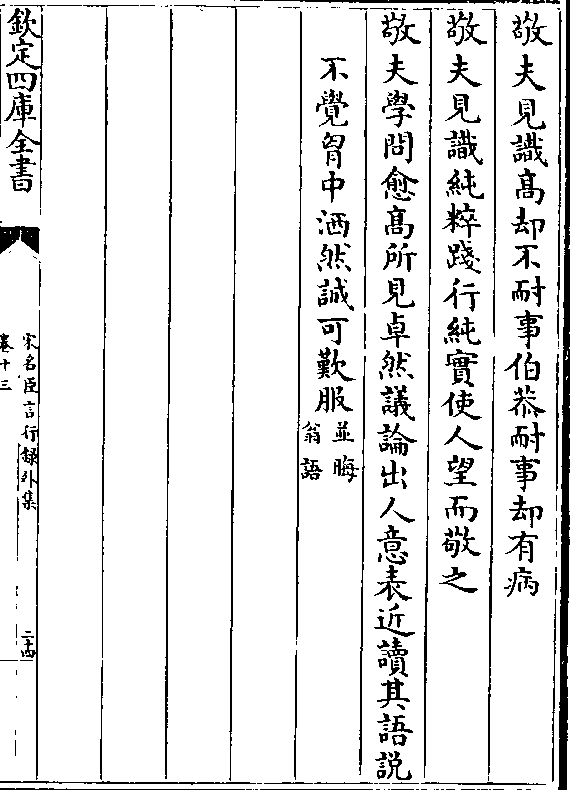 敬夫見識高却不耐事伯恭耐事却有病
敬夫見識純粹踐行純實使人望而敬之
敬夫學問愈高所見卓然議論出人意表近讀其語説
不覺胷中洒然誠可歎服並晦
翁語
欽定四庫全書
宋名臣言行録外集
卷十三
二十四